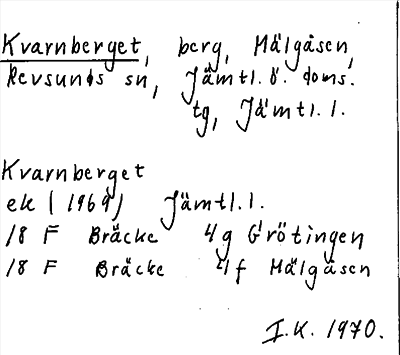 Kvarnberget, berg, Mälgåsen,
Revsunds sn, Jämtl. ö. doms.
tg, Jämtl. l.
Kvarnberget
ek (1969) Jämtl. l.
18 F Bräcke 4g Grötingen
18 F Bräcke 4f Mälgåsen
I.K. 1970.